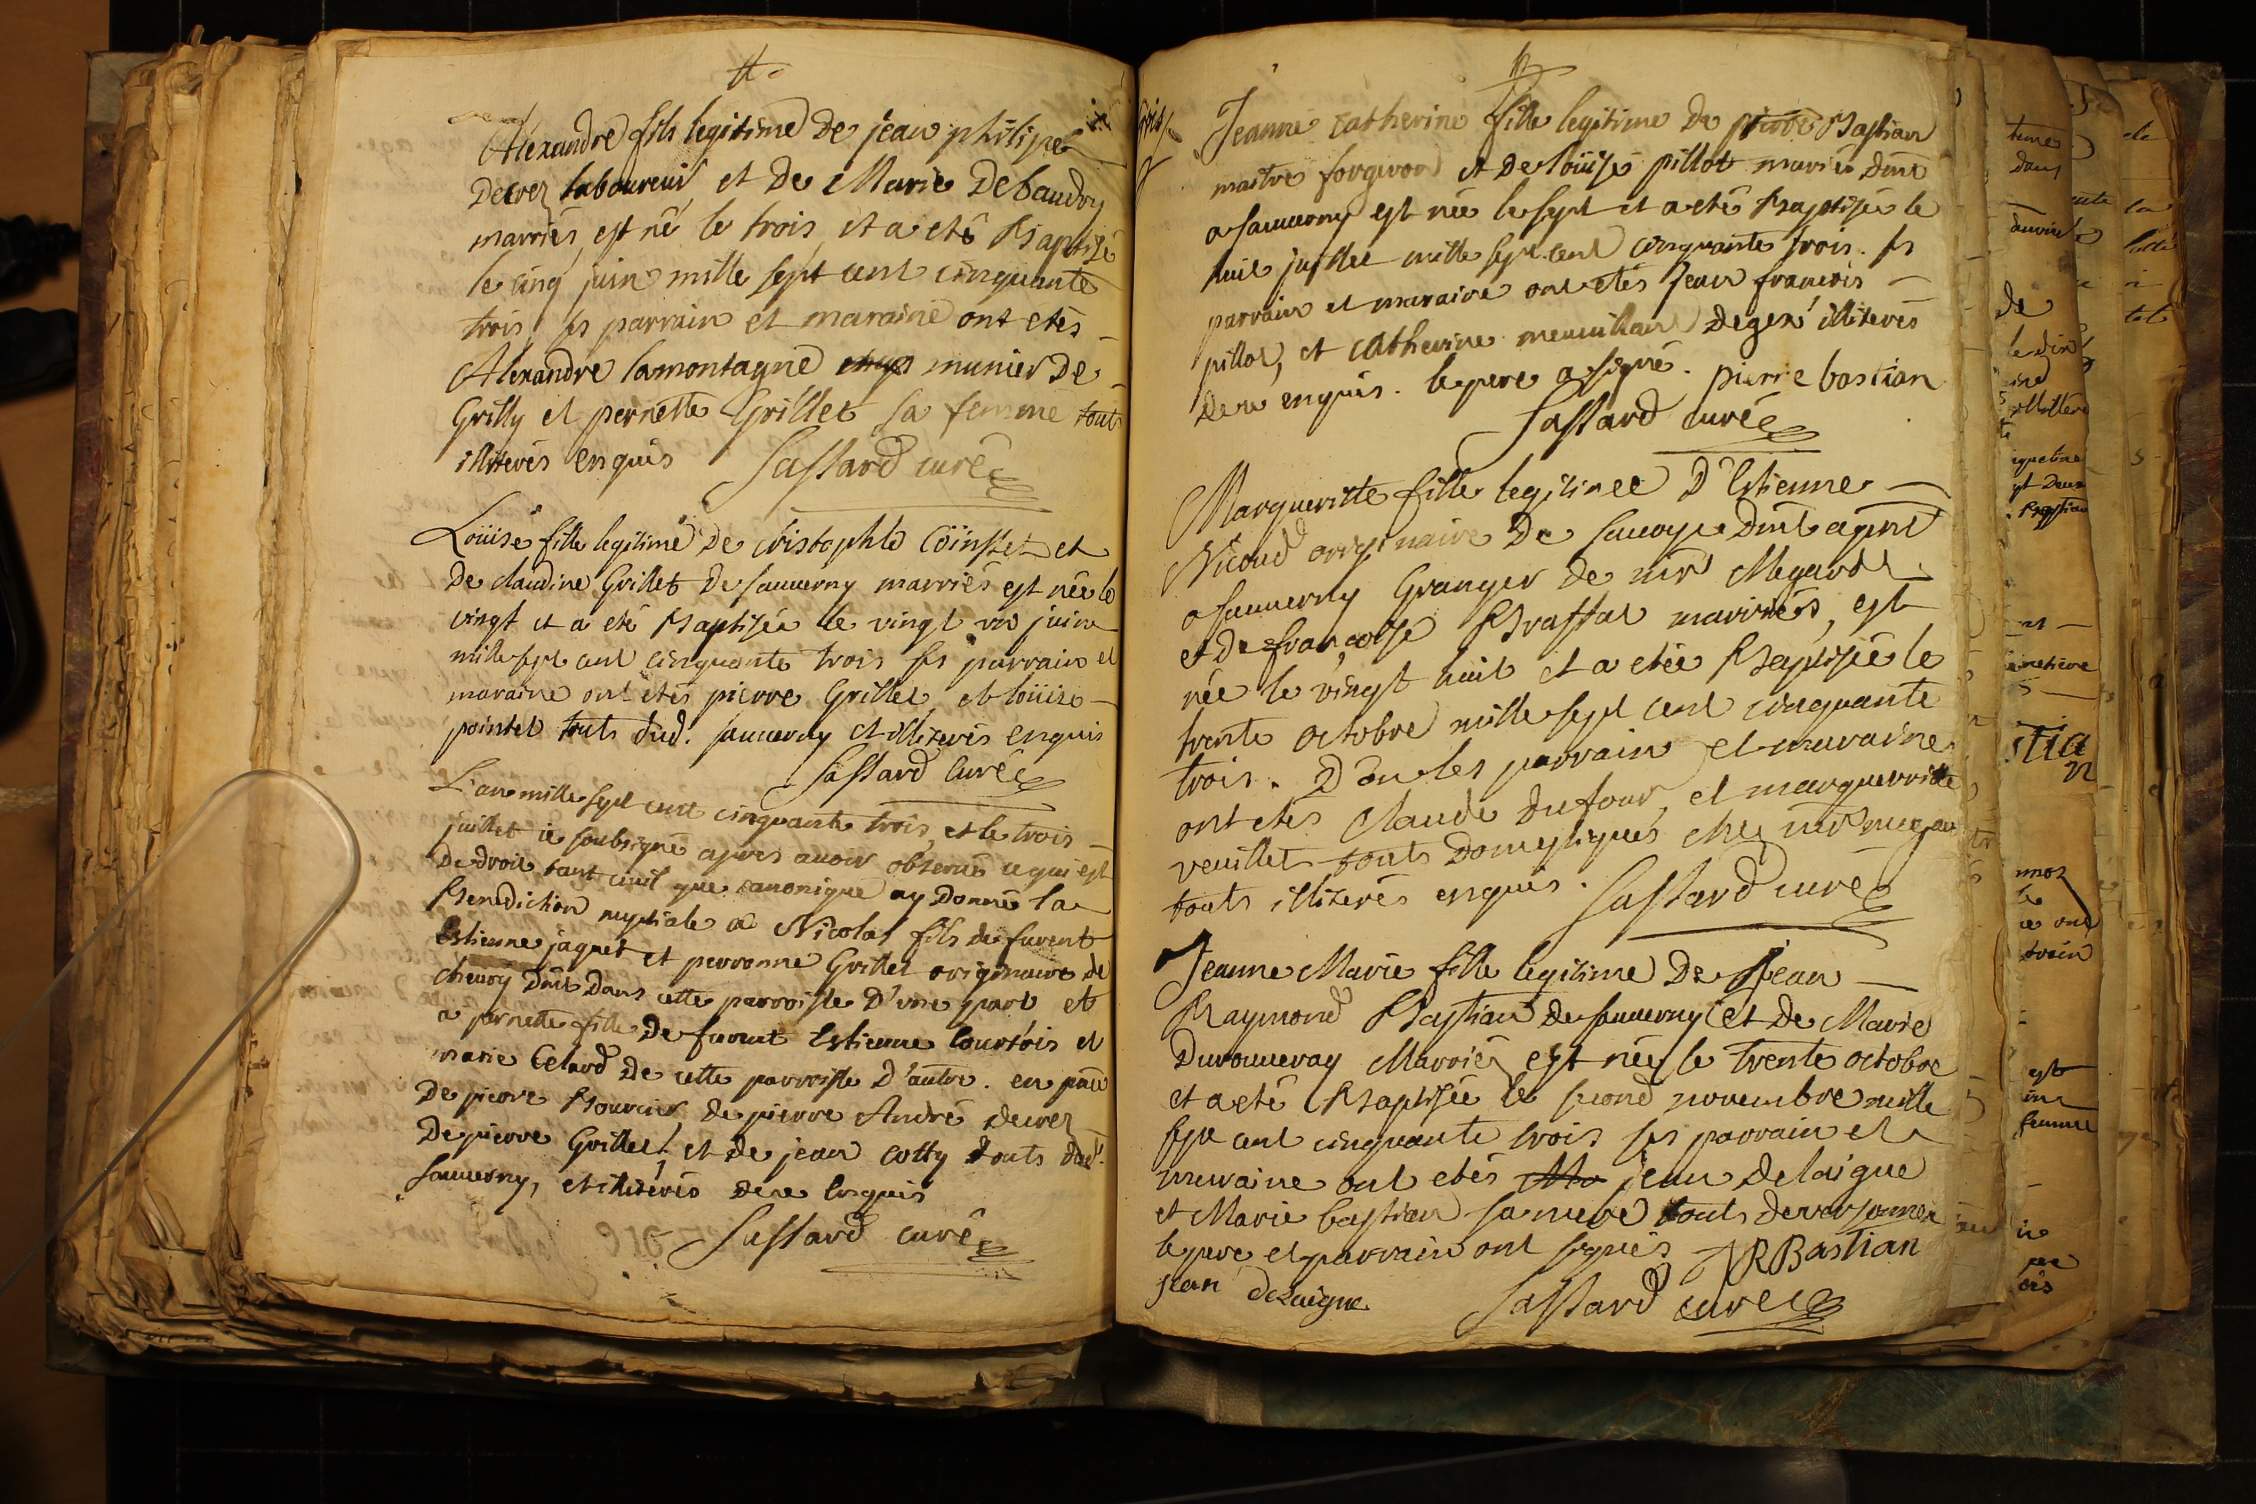 Alexandre fils legitime De jean philipe
Decrez laboureur et De Marie Debaudry
marriés, est né le trois, et a eté Baptisé
le cinq juin mille sept cent cinquante
trois, ses parrain et maraine ont etés
Alexandre lamontagne munier De
Grilly et pernette Grillet sa femme touts
illiterés enquis Sassard curé
Loüise fille legitime De cristophle Cöinstet et
De claudine Grillet De sauverny marriés est née le
vingt et a eté Baptisée le vingt juin
mille sept cent cinquante trois ses parrain et
maraine ont etés pierre Grillet, et loüise
pointet touts dud. sauverny et illiterés enquis
Sassard Curé
L'an mille sept cent cinquante trois, et le trois
juillet ie soubsigné apres avoir observé ce qui est
De droit tant civil que canonique ay Donné la
Benediction nuptiale a Nicolas fils de furent
Estienne jaquet et perronne Grillet originaire de
chevry Dmt Dans cette parroisse D'une part et
a pernette fille De furent Estienne Courtois et
marie Celard De cette parroisse D'autre. en pnce
De pierre Bourcier de pierre André Decrez
De pierre Grillet et de jean cotty touts dud.
Sauverny, et illiterés De ce Enquis
Sassard curé
Jeanne Catherine fille legitime De pierre Bastian
maitre forgeron et De loüise pillot mariés Dmt
a sauverny est née le sept et a eté Baptisée le
huit juillet mille sept cent cinquante trois. ses
parrain et maraine ont etés Jean francois
pillot, et Catherine De gex illiterés
De ce enquis. le pere a signé. pierre bastian
Sassard curé
Margueritte fille legitimee D'Estienne
Nicoud originaire De Savoye Dmt a pnt
a sauverny Granger de mr Megard
et de françoise Brassat marriés, est
née le vingt huit et a etée Baptisée le
trente octobre mille sept cent cinquante
trois. Dont les parrain et maraine
ont etés Claude Dufour, et marguerritte
veuillet touts Domestiques chez mr
touts illiterés enquis. Sassard curé
Jeanne Marie fille legitime De Jean
Raymond Bastian de sauverny et de Marie
Duronneray Marriés est née le trente octobre
et a eté Baptisée le second novembre mille
sept cent cinquante trois ses parrain et
maraine ont etés jean Delaigue
et Marie bastian sa touts de
le pere et parrain ont signés JRBastian
jean deLaigue Sassard curé